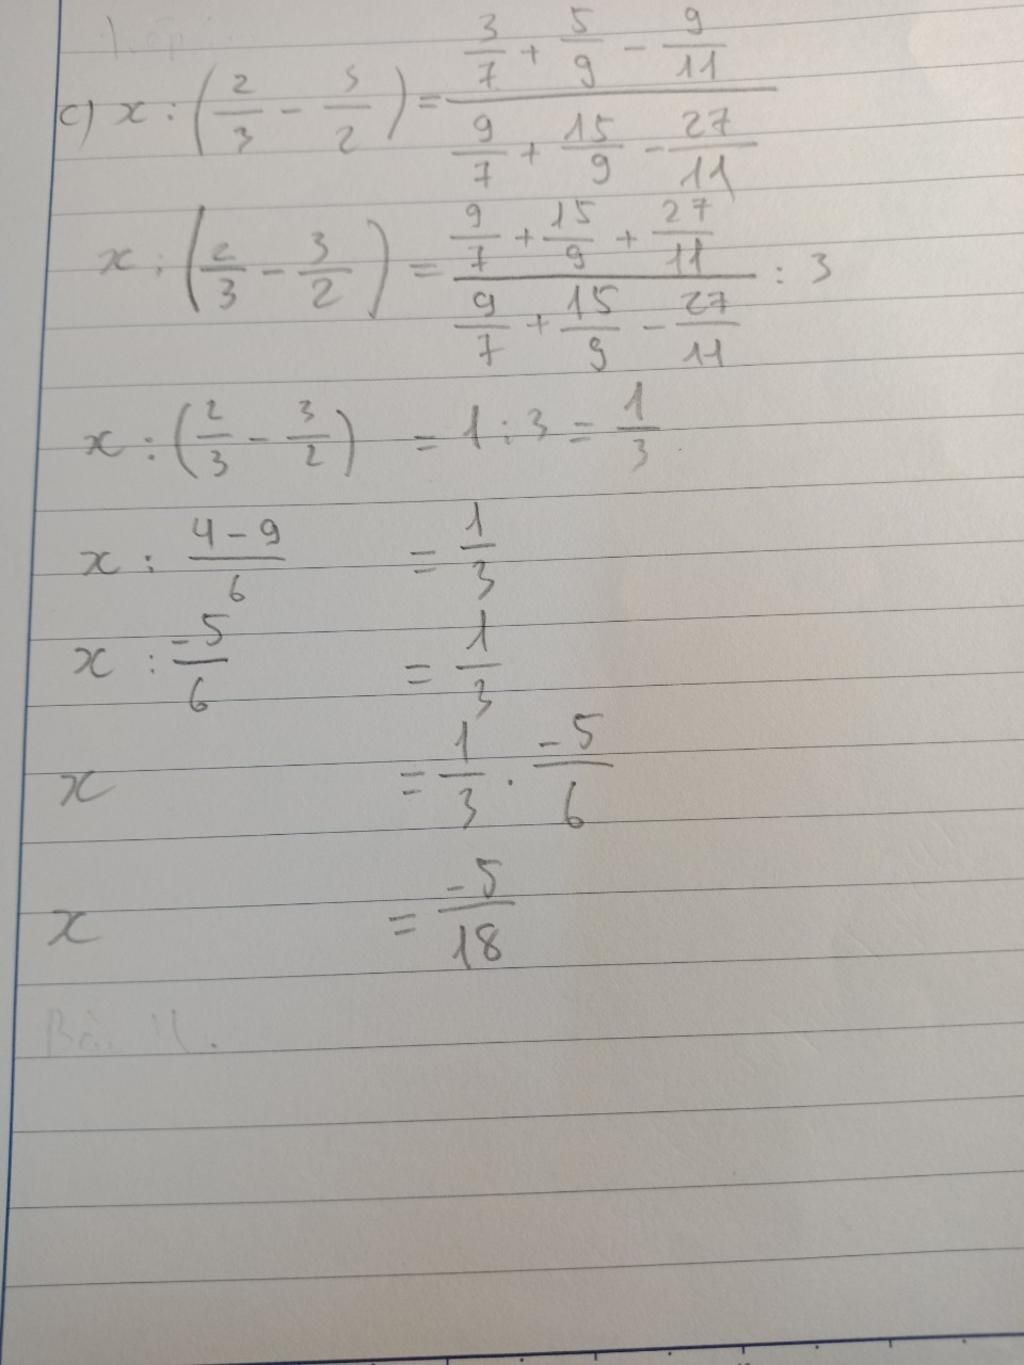 c) x : (2/3 - 3/2) = (3/7 + 5/9 - 9/11)/(9/7 + 15/9 - 27/11)
x : (2/3 - 3/2) = (9/7 + 15/9 + 27/11)/(9/7 + 15/9 - 27/11) : 3
x : (2/3 - 3/2) = 1 : 3 = 1/3
x : (4 - 9)/6 = 1/3
x : -5/6 = 1/3
x = 1/3 . -5/6
x = -5/18